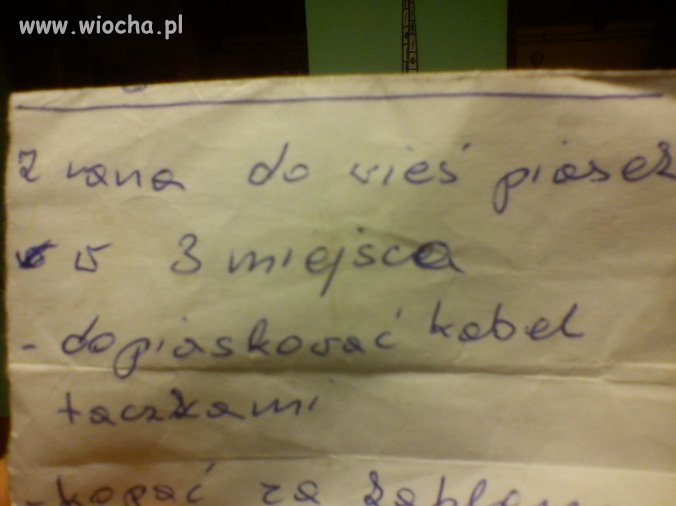 www.wiocha.pl
z rana do wieś piasek
w 3 miejsca
- dopiaskować kabel
taczkami
- kopać za